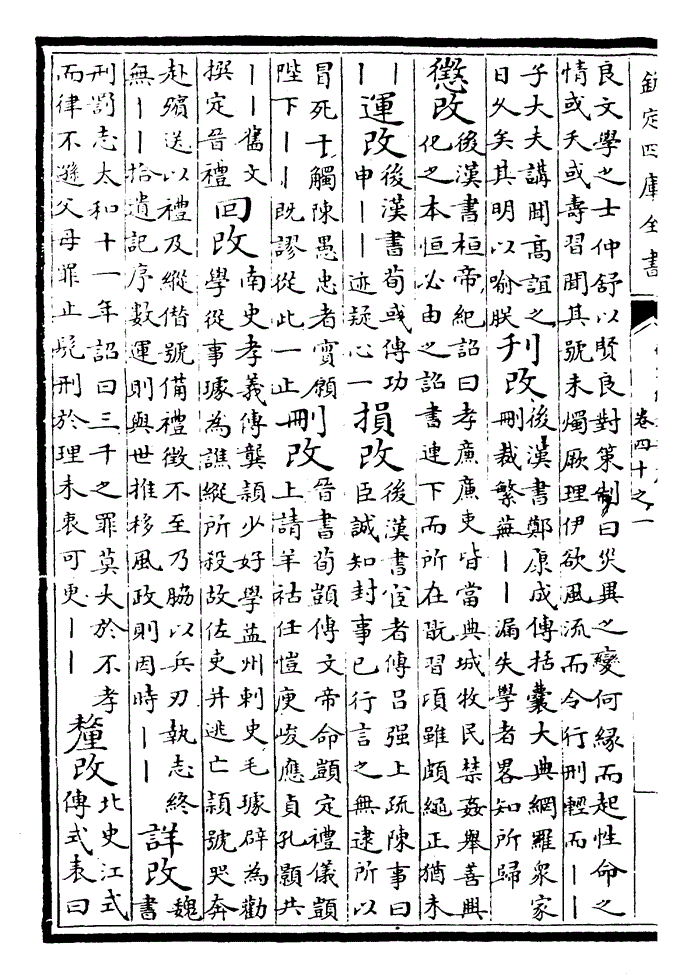 欽定四庫全書
卷四十之一
良文學之士仲舒以賢良對策制曰災異之變何緣而起性命之
情或夭或壽習聞其號未燭厥理伊欲風流而令行刑輕而｜｜
子大夫講聞高誼之
日久矣其明以喻朕
刋改
後漢書鄭康成傳括囊大典網羅衆家
刪裁繁蕪｜｜漏失學者畧知所歸
懲改
後漢書桓帝紀詔曰孝廉廉吏皆當典城牧民禁姦舉善興
化之本恒必由之詔書連下而所在翫習項雖頗繩正猶未
｜
｜
運改
後漢書荀彧傳功
申｜｜迹疑心一
損改
後漢書宦者傳吕强上疏陳事曰
臣誠知封事已行言之無逮所以
冒死干觸陳愚忠者實願
陛下｜｜既謬從此一止
刪改
晉書荀顗傳文帝命顗定禮儀顗
上請羊祜任愷庾峻應貞孔顥共
｜｜舊文
撰定晉禮
回改
南史孝義傳龔頴少好學益州刺史毛璩辟為勸
學從事璩為譙縱所殺故佐吏并逃亡頴號哭奔
赴殯送以禮及縱僭號備禮徵不至乃脇以兵刃執志終
無｜｜拾遺記序數運則與世推移風政則因時｜｜
詳改
魏
書
刑罰志太和十一年詔曰三千之罪莫大於不孝
而律不遜父母罪止髠刑於理未衷可更｜｜
釐改
北史江式
傳式表曰